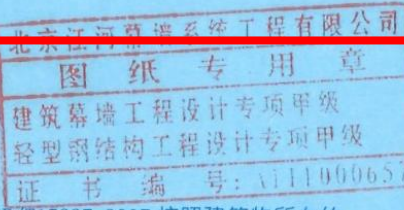 北京江河幕墙系统工程有限公司
图纸专用章
建筑幕墙工程设计专项甲级
轻型钢结构工程设计专项甲级
证书编号: